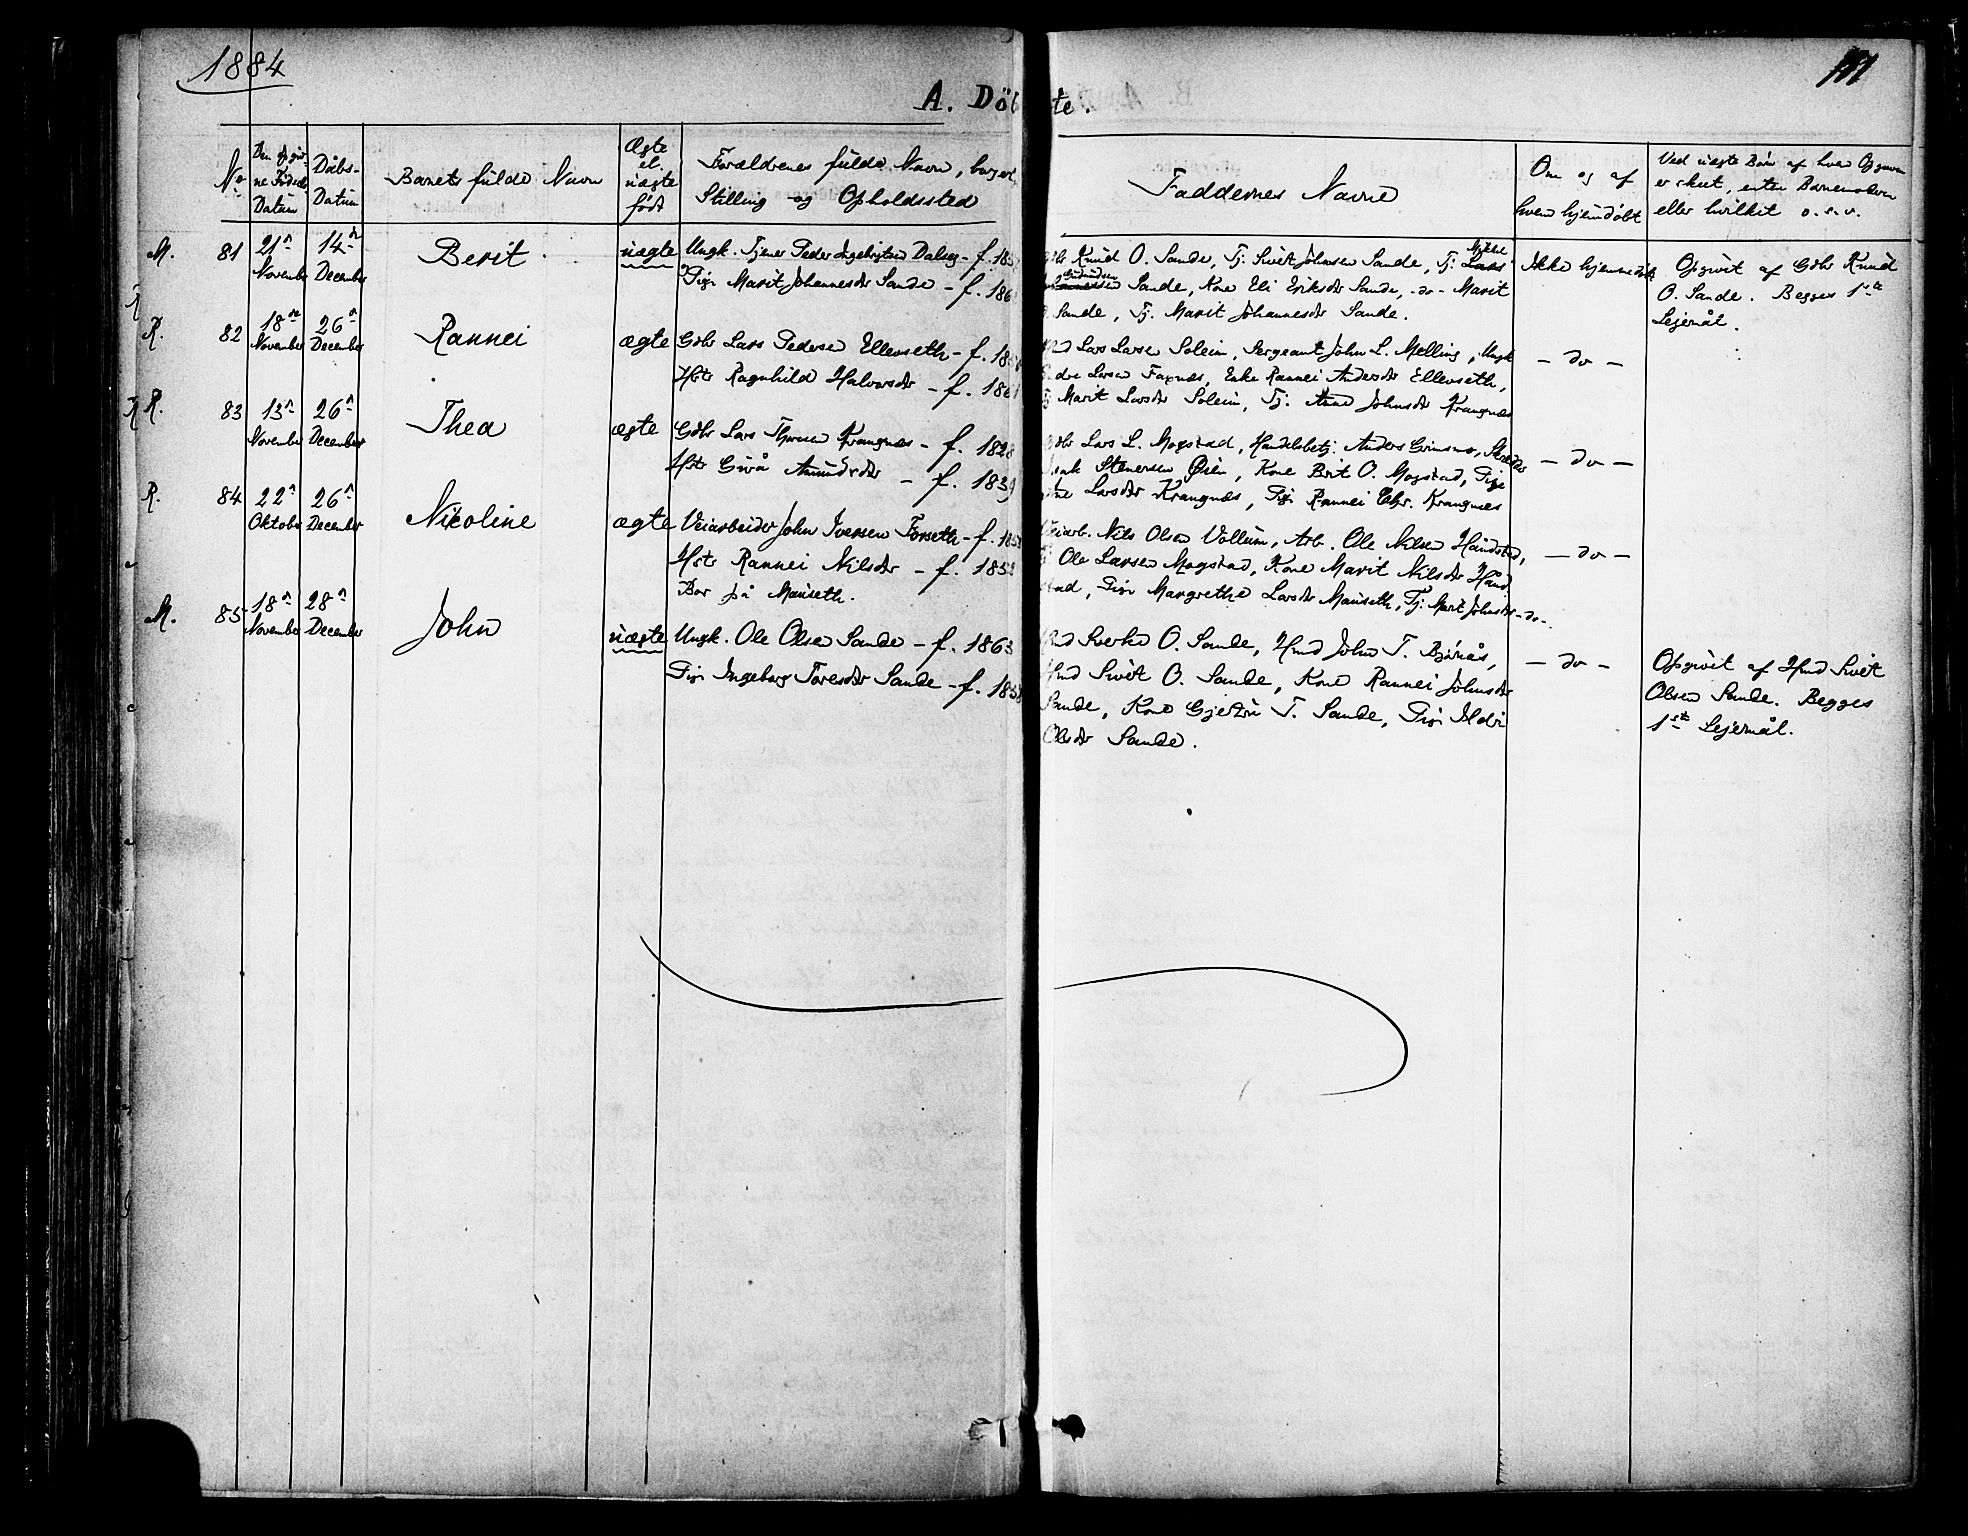 1884
A. Döbte.
No
Den opgiv-
ne Födsels
Datum
Dåbs-
Datum
Barnets fulde Navn
Ægte
el.
uægte
födt
Forældrenes fulde Navn, borgerl.
Stilling og Opholdssted
Faddernes Navne
Om og af
hvem hjemdöbt
Ved uægte Börn af hvem Opgaven
er skeet, enten Barnemoderen
eller hvilket o. s. v.
M. 81 21n November 14n December Berit uægte
Ungk. Tjener Peder Ingebrigtsen Dalseg - f.
Pige Marit Johannesdr Sande - f.
Knud O. Sande, Tj. Sivert Johnsen Sande, Tj. Mikkel
Gudmudsen Sande, Kone Eli Eriksdr Sande, -do- Marit
Sande, Tj. Marit Johannesdr Sande.
Ikke hjemmedöbt
Opgivet af Gbr Knud
O. Sande. Begges 1ste
Lejermål.
R. 82 18de November 26n December Rannei ægte
Gbr Lars Pedersen Ellevseth - f.
Hstr Ragnhild Halvorsdr - f. 1861
Lars Larsen Soleim, Sergeant John L. Melling, Ungk
Larsen Foxnæs, Enke Rannei Andersdr Ellevseth,
Tj. Marit Larsdr Soleim, Tj. Anne Johnsdr Krangnæs
- do -
R. 83 13n November 26n December Thea ægte
Gbr Lars Thoresen Krangnæs - f. 1828
Hstr Gurå Amundsdr - f. 1839
Gbr Lars L. Mogstad, Handelsbetj. Anders Grimsmo, Skrædder
Stenersen Øien, Kone Brit O. Mogstad, Pige
Larsdr Krangnæs, Pige Rannei Chr. Krangnæs
- do -
R. 84 22n Oktober 26n December Nicoline ægte
Veiarbeider John Iversen Forseth - f.
Hstr Rannei Nilsdr - f. 1853
Bor på Mauseth.
Veiarb. Nils Olsen Vollum, Arb. Ole Nilsen Håndstad,
Ole Larsen Mogstad, Kone Marit Nilsdr Hånd
stad, Pige Margrethe Larsdr Mauseth, Tj. Marit Johnsdr -do-
- do -
M. 85 18n November 28n December John uægte
Ungk. Ole Olsen Sande - f. 1863
Pige Ingeborg Toresdr Sande - f.
Hmd Sverke O. Sande, Hmd John T. Björnås,
Hmd Sivert O. Sande, Kone Rannei Johnsdr
Sande, Kone Gjertru T. Sande, Pige Ildri
Olsdr Sande.
- do -
Opgivet af Hmd Sivert
Olsen Sande. Begges
1ste Lejermål.